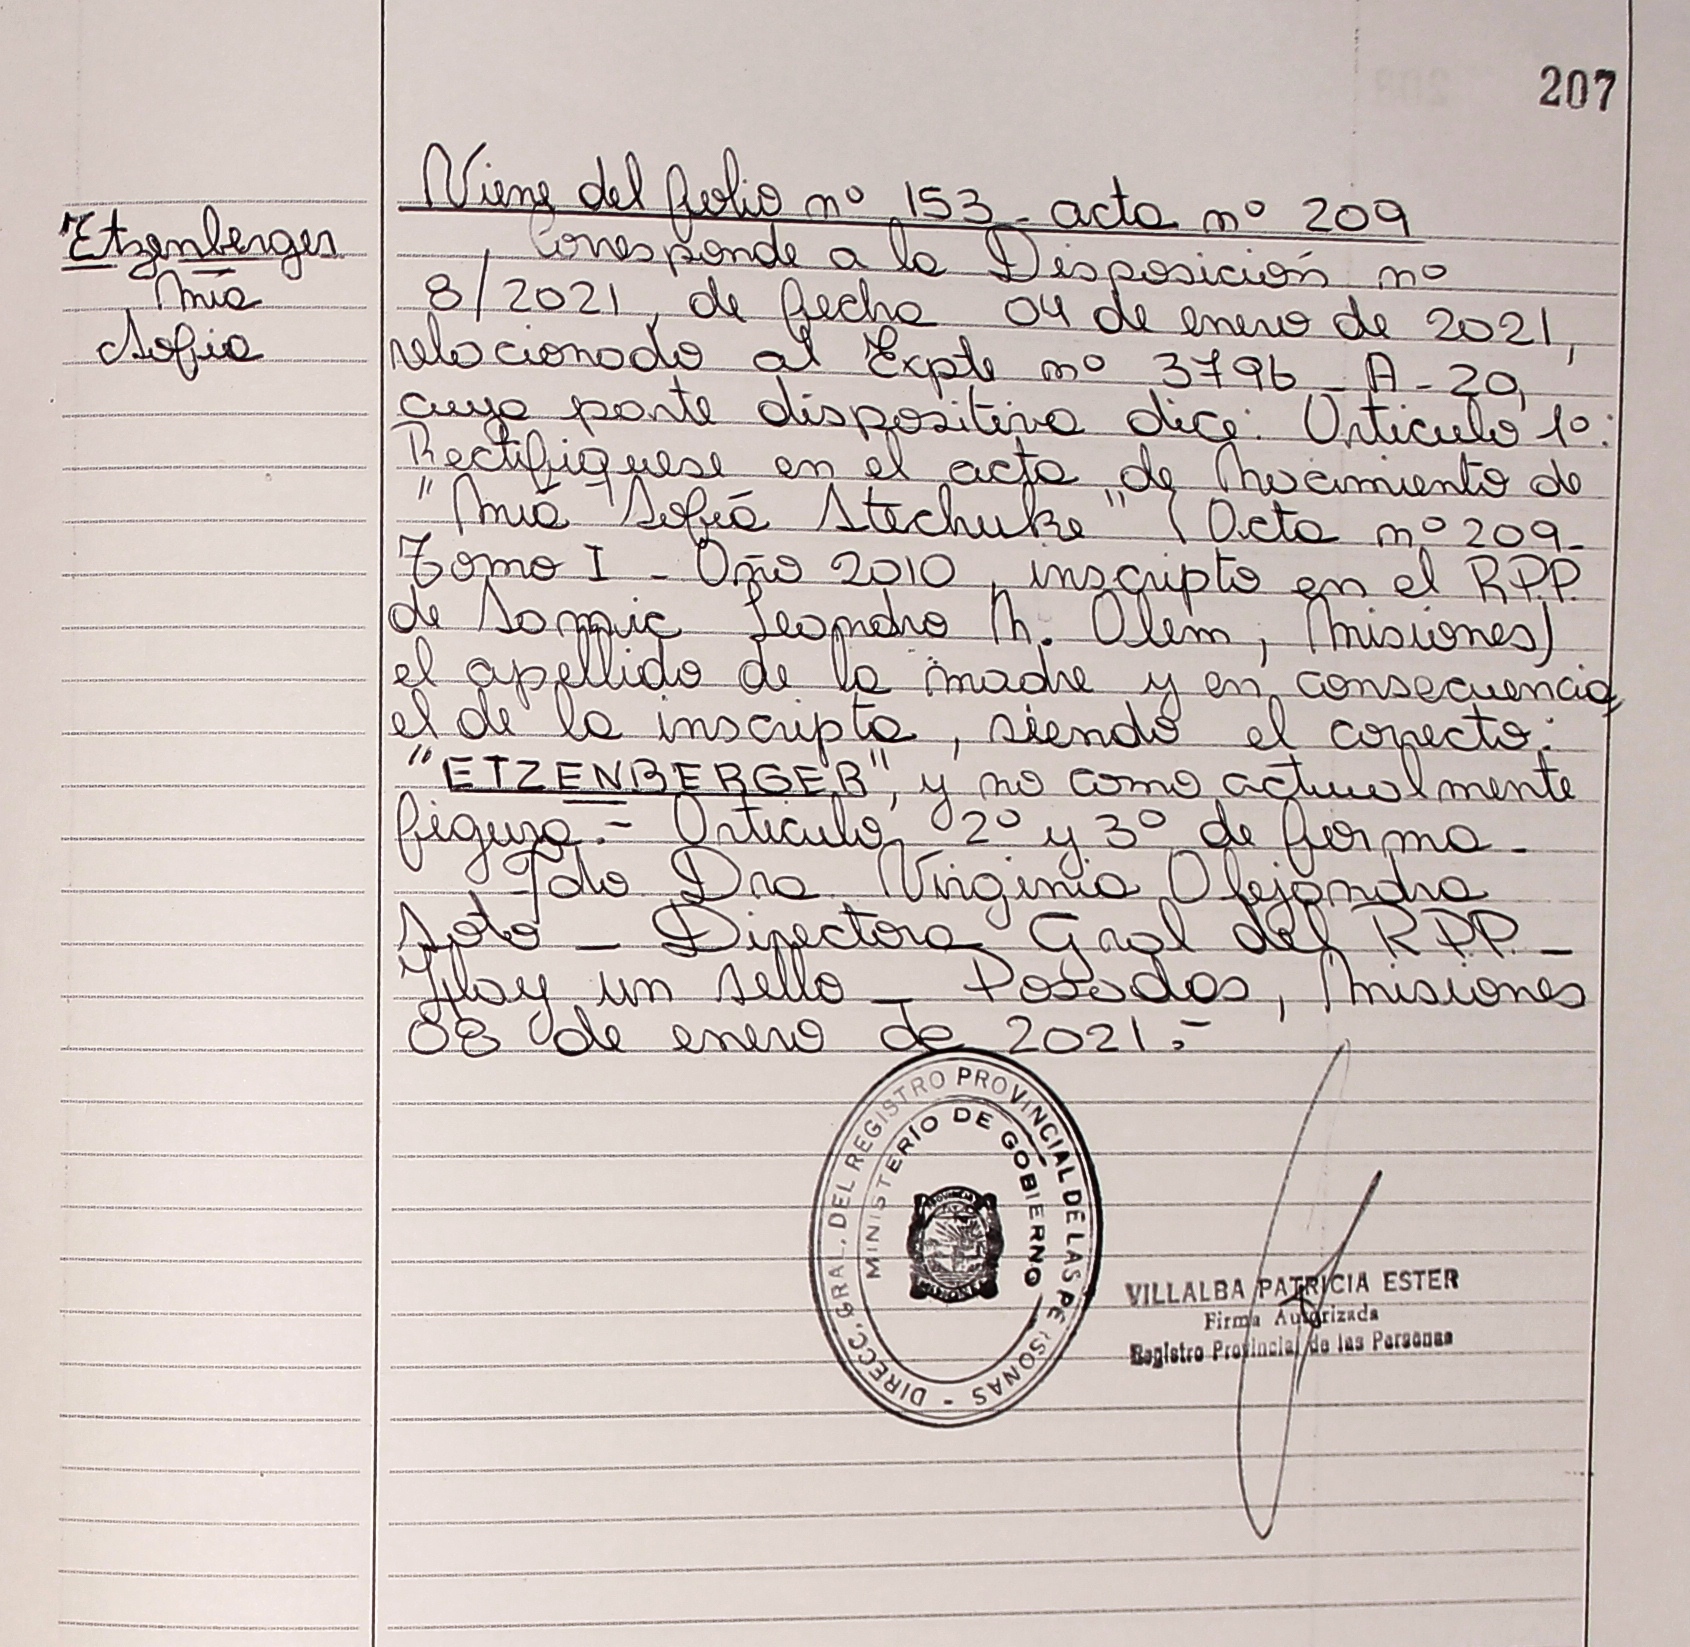 207
Etzenberger
Mía
Sofía
Viene del folio nº 153 - acta nº 209
Corresponde a la Disposición nº
8/2021, de fecha 04 de enero de 2021,
relacionado al Expte nº 3796 - A - 20,
cuya parte dispositiva dice: Articulo 1º:
Rectifiquese en el acta de Nacimiento de
"Mía Sofía Stechuke" (Acta nº 209 -
Tomo I - Año 2010, inscripto en el R.P.P.
de Samic Leandro N. Alem, Misiones)
el apellido de la madre y en consecuencia,
el de la inscripta, siendo el correcto:
"ETZENBERGER", y no como actualmente
figura.= Articulo 2º y 3º de forma -
Fdo Dra Virginia Alejandra
Soto - Directora Gral del R.P.P. -
Hay un sello - Posadas, Misiones
08 de enero de 2021.=
DIRECC. GRAL. DEL REGISTRO PROVINCIAL DE LAS PERSONAS -
MINISTERIO DE GOBIERNO
VILLALBA PATRICIA ESTER
Firma Autorizada
Registro Provincial de las Personas